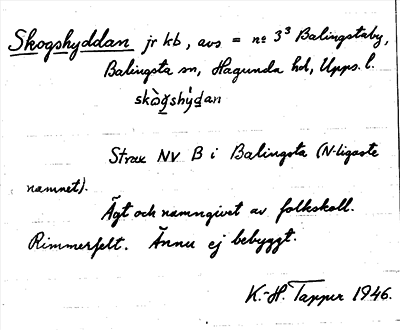 Skogshyddan jr kb, avs = nº 3³ Balingstaby,
Balingsta sn, Hagunda hd, Upps. l.
skòg̲shýd̲an
Strax NV B i Balingsta (N-ligaste
namnet).
Ägt och namngivet av folkskoll.
Rimmerfelt. Ännu ej bebyggt.
K.-H. Tapper 1946.